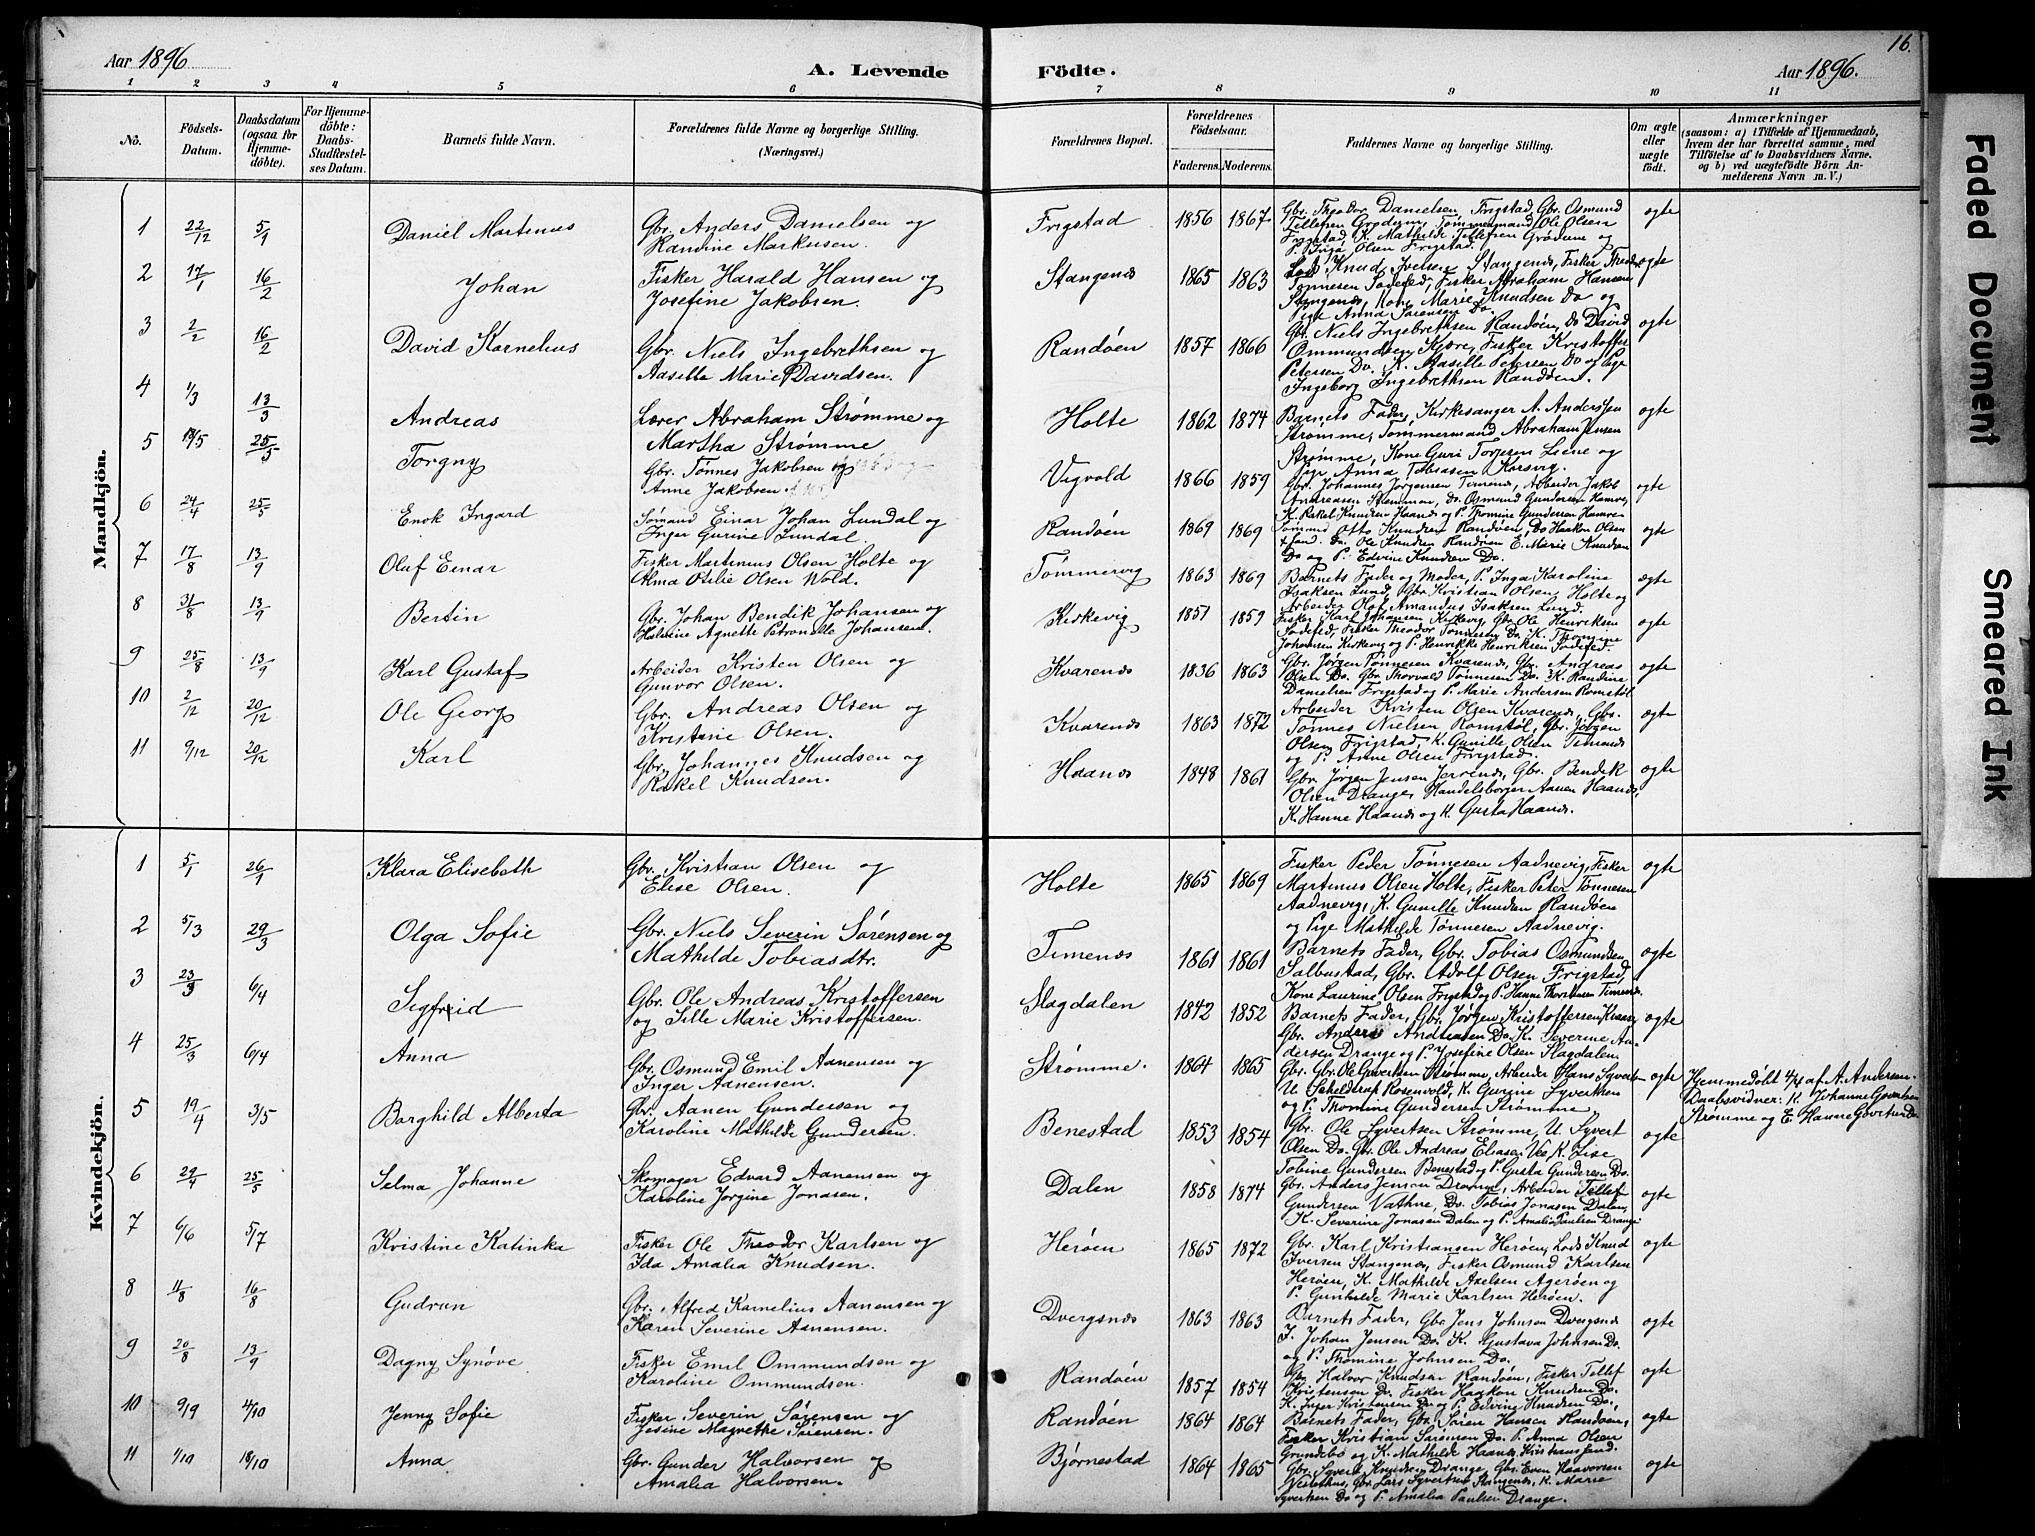 16.
Aar 1896 A. Levende Födte. Aar 1896.
1 2 3 4 5 6 7 8 9 10 11
No. Födsels-Datum. Daabsdatum (ogsaa for Hjemmedöbte). For Hjemmedöbte: Daabs-Stadfæstelses Datum. Barnets fulde Navn. Forældrenes fulde Navne og borgerlige Stilling. (Næringsvei.) Forældrenes Bopæl. Forældrenes Födselsaar. Faderens. Moderens. Faddernes Navne og borgerlige Stilling. Om ægte eller uægte födt. Anmærkninger (saasom: a) i Tilfælde af Hjemmedaab, hvem der har forrettet samme, med Tilföielse af to Daabsvidners Navne. og b) ved uægtefödte Börn Anmelderens Navn m. V.)
Mandkjön.
1 22/12 5/1 Daniel Martinus Gbr. Anders Danielsen og Frigstad 1856 1867 Gbr. Theodor Danielsen Frigstad, Gbr. Osmund ægte
Randine Markusen. Tellefsen Grødum, Tømmermand Ole Olsen
Frigstad, K. Mathilde Tellefsen Grødum og
P. Inga Olsen Frigstad.
2 17/1 16/2 Johan Fisker Harald Hansen og Stangenes 1865 1863 Lods Knud Iversen Stangenes, Fisker Theodor ægte
Josefine Jakobsen. Tønnesen Fodefed, Fisker Abraham Hansen
Stangenes, Kone Marie Knudsen Do og
Pige Anna Sørensen Do.
3 2/2 16/2 David Kornelius Gbr. Niels Ingebrethsen og Randøen 1857 1866 Gbr. Niels Ingebrethsen Randøen, Do David ægte
Aasille Marie Davidsen. Ommundsen Kjøre, Fisker Kristoffer
Petersen Do. K. Aasille Petersen Do og Pige
Ingeborg Ingebrethsen Randøen.
4 1/3 13/3 Andreas Lærer Abraham Strømme og Holte 1862 1874 Barnets Fader, Kirkesanger A. Anderssen ægte
Martha Strømme Strømme, Tømmermand Abraham Jensen
Strømme, Kone Guri Torjersen Liene og
Pige Anna Tobiasen Korsvig.
5 13/5 25/5 Torgny Gbr. Tønnes Jakobsen og Vigvold 1866 1859 Gbr. Johannes Jørgensen Timenes, Arbeider Jakob ægte
Anne Jakobsen Andreasen Stemmen, Do. Osmund Gundersen Hamre,
K. Rakel Knudsen Haanes og P. Thomine Gundersen Hamre
6 24/4 25/5 Enok Ingard Sømand Einar Johan Lundal og Randøen 1869 1869 Sømand Otto Knudsen Randøen, Do Haakon Olsen ægte
Inger Gurine Lundal. Ole Knudsen Randøen E. Marie Knudsen
Do og P. Edvine Knudsen Do.
7 17/8 13/9 Oluf Einar Fisker Martinius Olsen Holte og Tømmervig 1863 1869 Barnets Fader og Moder, P. Inga Karoline ægte
Alma Otilie Olsen Wold. Isaksen Lund, Gbr. Kristian Olsen, Holte og
Arbeider Olaf Amandus Isaksen Lund.
8 31/8 13/9 Bertin Gbr. Johan Bendik Johansen og Kirkevig 1851 1859 Fisker Karl Johansen Kirkevig, Gbr. Ole Henriksen ægte
Halvine Agnette Petronelle Johansen. Fodefed, Fisker Theodor Tønnesen Do. K. Thomine
Johansen Kirkevig og P. Henrikke Henriksen Fodefed.
9 25/8 13/9 Karl Gustaf Arbeider Kristen Olsen og Kvarenes 1836 1863 Gbr. Jørgen Tønnesen Kvarenes, Gbr. Andreas ægte
Gunvor Olsen. Olsen Do. Gbr. Thorvald Tønnesen Do. K. Randine
Danielsen Frigstad og P. Marie Andersen Romstøl
10 2/12 20/12 Ole Georg Gbr. Andreas Olsen og Kvarenes 1863 1872 Arbeider Kristen Olsen Kvarenes, Gbr. ægte
Kristine Olsen. Tønnes Nielsen Romstøl, Gbr. Jørgen
Olsen Frigstad, K. Gunille Olsen Timenes
og P. Anne Olsen Frigstad.
11 9/12 20/12 Karl Gbr. Johannes Knudsen og Haanes 1848 1861 Gbr. Jørgen Jensen Jerenes, Gbr. Bendik ægte
Rakel Knudsen. Olsen Drange, Handelsborger Aanen Haanes,
K. Hanne Haanes og K. Gusta Haanes.
Kvindekjön.
1 5/1 26/1 Klara Elisebeth Gbr. Kristian Olsen og Holte 1865 1869 Fisker Peder Tønnesen Aadnevig, Fisker ægte
Elise Olsen. Martinus Olsen Holte, Fisker Peter Tønnesen
Aadnevig, K. Gunille Knudsen Randøen
og Pige Mathilde Tønnesen Aadnevig.
2 5/3 29/3 Olga Sofie Gbr. Niels Severin Sørensen og Timenes 1861 1861 Barnets Fader, Gbr. Tobias Osmundsen ægte
Mathilde Tobiasdtr. Salbustad, Gbr. Adolf Olsen Frigstad,
Kone Laurine Olsen Frigstad og P. Hanne Thorkildsen Timenes.
3 23/3 6/4 Sigfrid Gbr. Ole Andreas Kristoffersen Slagdalen 1842 1852 Barnets Fader, Gbr. Jørgen Kristoffersen ægte
og Sille Marie Kristoffersen. Gbr. Andreas Andreasen Do. K. Severine An-
dersen Drange og P. Josefine Olsen Slagdalen
4 25/3 6/4 Anna Gbr. Osmund Emil Aanensen og Strømme. 1864 1865 Gbr. Gbr. Ole Syvertsen Strømme, Arbeider Hans Syvertsen ægte Hjemmedøbt 4/4 af A. Andersen.
Inger Aanensen. U. Sekeldrup Rosenvold, K. Gurine Syvertsen Daabsvidner: K. Johanne Govertsen
og P. Thomine Gundersen Strømme, Strømme og E. Hanne Govertsen Do
5 19/4 3/5 Borghild Alberta Gbr. Aanen Gundersen og Benestad 1853 1854 Gbr. Ole Syvertsen Strømme, U. Syvert ægte
Karoline Mathilde Gundersen. Olsen Do. Gbr. Ole Andreas Eliasen Vee K. Lise
Tobine Gundersen Benestad og P. Gusta Gundersen Do.
6 29/4 25/5 Selma Johanne Skomager Edvard Aanensen og Dalen 1858 1874 Gbr. Anders Jensen Drange, Arbeider Tellef ægte
Karoline Jorgine Jonasen. Gundersen Vathne, Do. Tobias Jonasen Dalen,
K. Severine Jonasen Dalen og P. Amalia Paulsen Drange
7 6/6 5/7 Kristine Katinka Fisker Ole Theodor Karlsen og Herøen 1865 1872 Gbr. Karl Kristiansen Herøen, Lods Knud ægte
Ida Amalia Knudsen. Iversen Stangenes, Fisker Osmund Karlsen
Herøen, K. Mathilde Axelsen Agerøen og
P. Gunhilde Marie Karlsen Herøen.
8 11/8 16/8 Gudrun Gbr. Alfred Kornelius Aanensen og Dvergsnes 1863 1863 Barnets Fader, Gbr Jens Johnsen Dvergsnes ægte
Karen Severine Aanensen. F. Johan Jensen Do. K. Gustava Johnsen Do.
og P. Thomine Johnsen Do.
9 20/8 13/9 Dagny Synøve Fisker Emil Ommundsen og Randøen 1857 1854 Gbr. Halvor Knudsen Randøen, Fisker Tellef ægte
Karoline Ommundsen. Kristensen Do. Fisker Haakon Knudsen Do.
K. Inger Kristensen Do og P. Edvine Knudsen Do.,
10 9/9 4/10 Jenny Sofie Fisker Severin Sørensen og Randøen 1864 1864 Barnets Fader, Gbr. Søren Hansen Randøen, ægte
Jesine Magrethe Sørensen. Fisker Kristian Sørensen Do. P. Anna Olsen
og K. Mathilde Haanes Kristianssand.
11 1/10 18/10 Anna Gbr. Gunder Halvorsen og Bjørnestad 1864 1865 Gbr. Syvert Knudsen Drange, Gbr. Even Haavorsen ægte
Amalia Halvorsen. Gbr. Lars Syvertsen Stangenes, K. Marie
Syvertsen Do og P. Amalia Paulsen Drange.
Faded Document
Smeared Ink